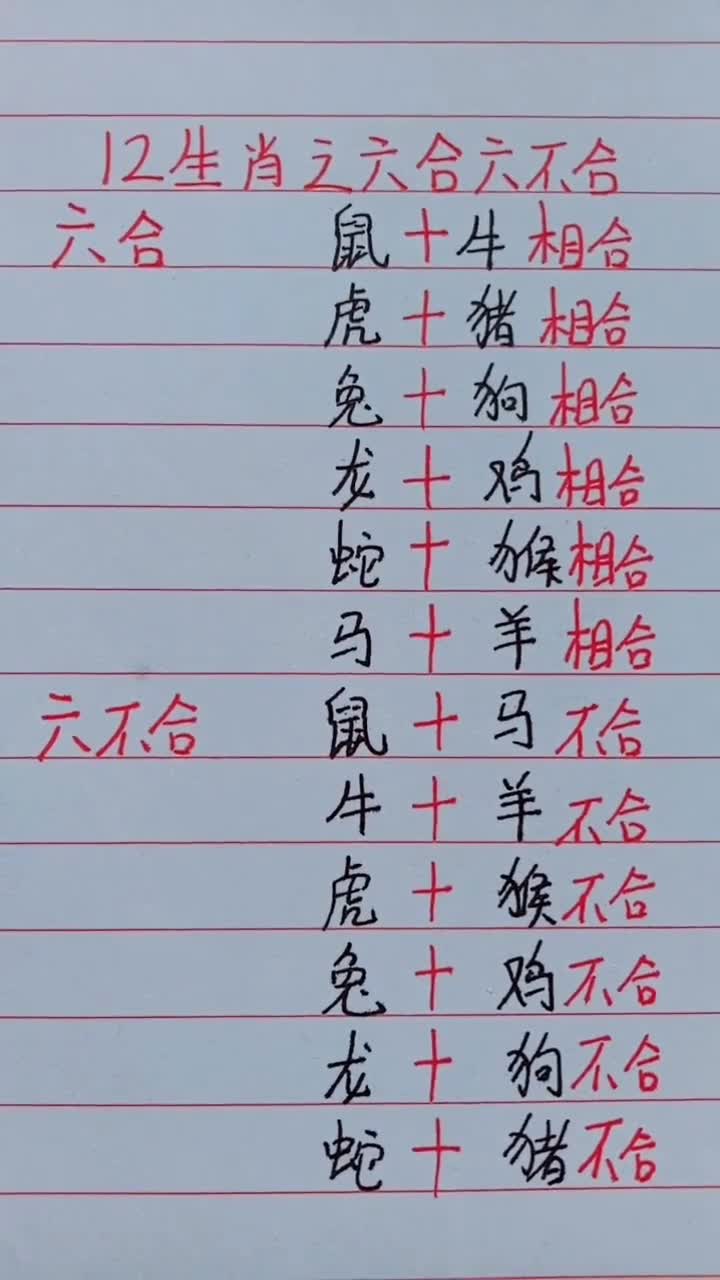 12生肖之六合六不合
六合 鼠+牛相合
虎+猪相合
兔+狗相合
龙+鸡相合
蛇+猴相合
马+羊相合
六不合 鼠+马不合
牛+羊不合
虎+猴不合
兔+鸡不合
龙+狗不合
蛇+猪不合